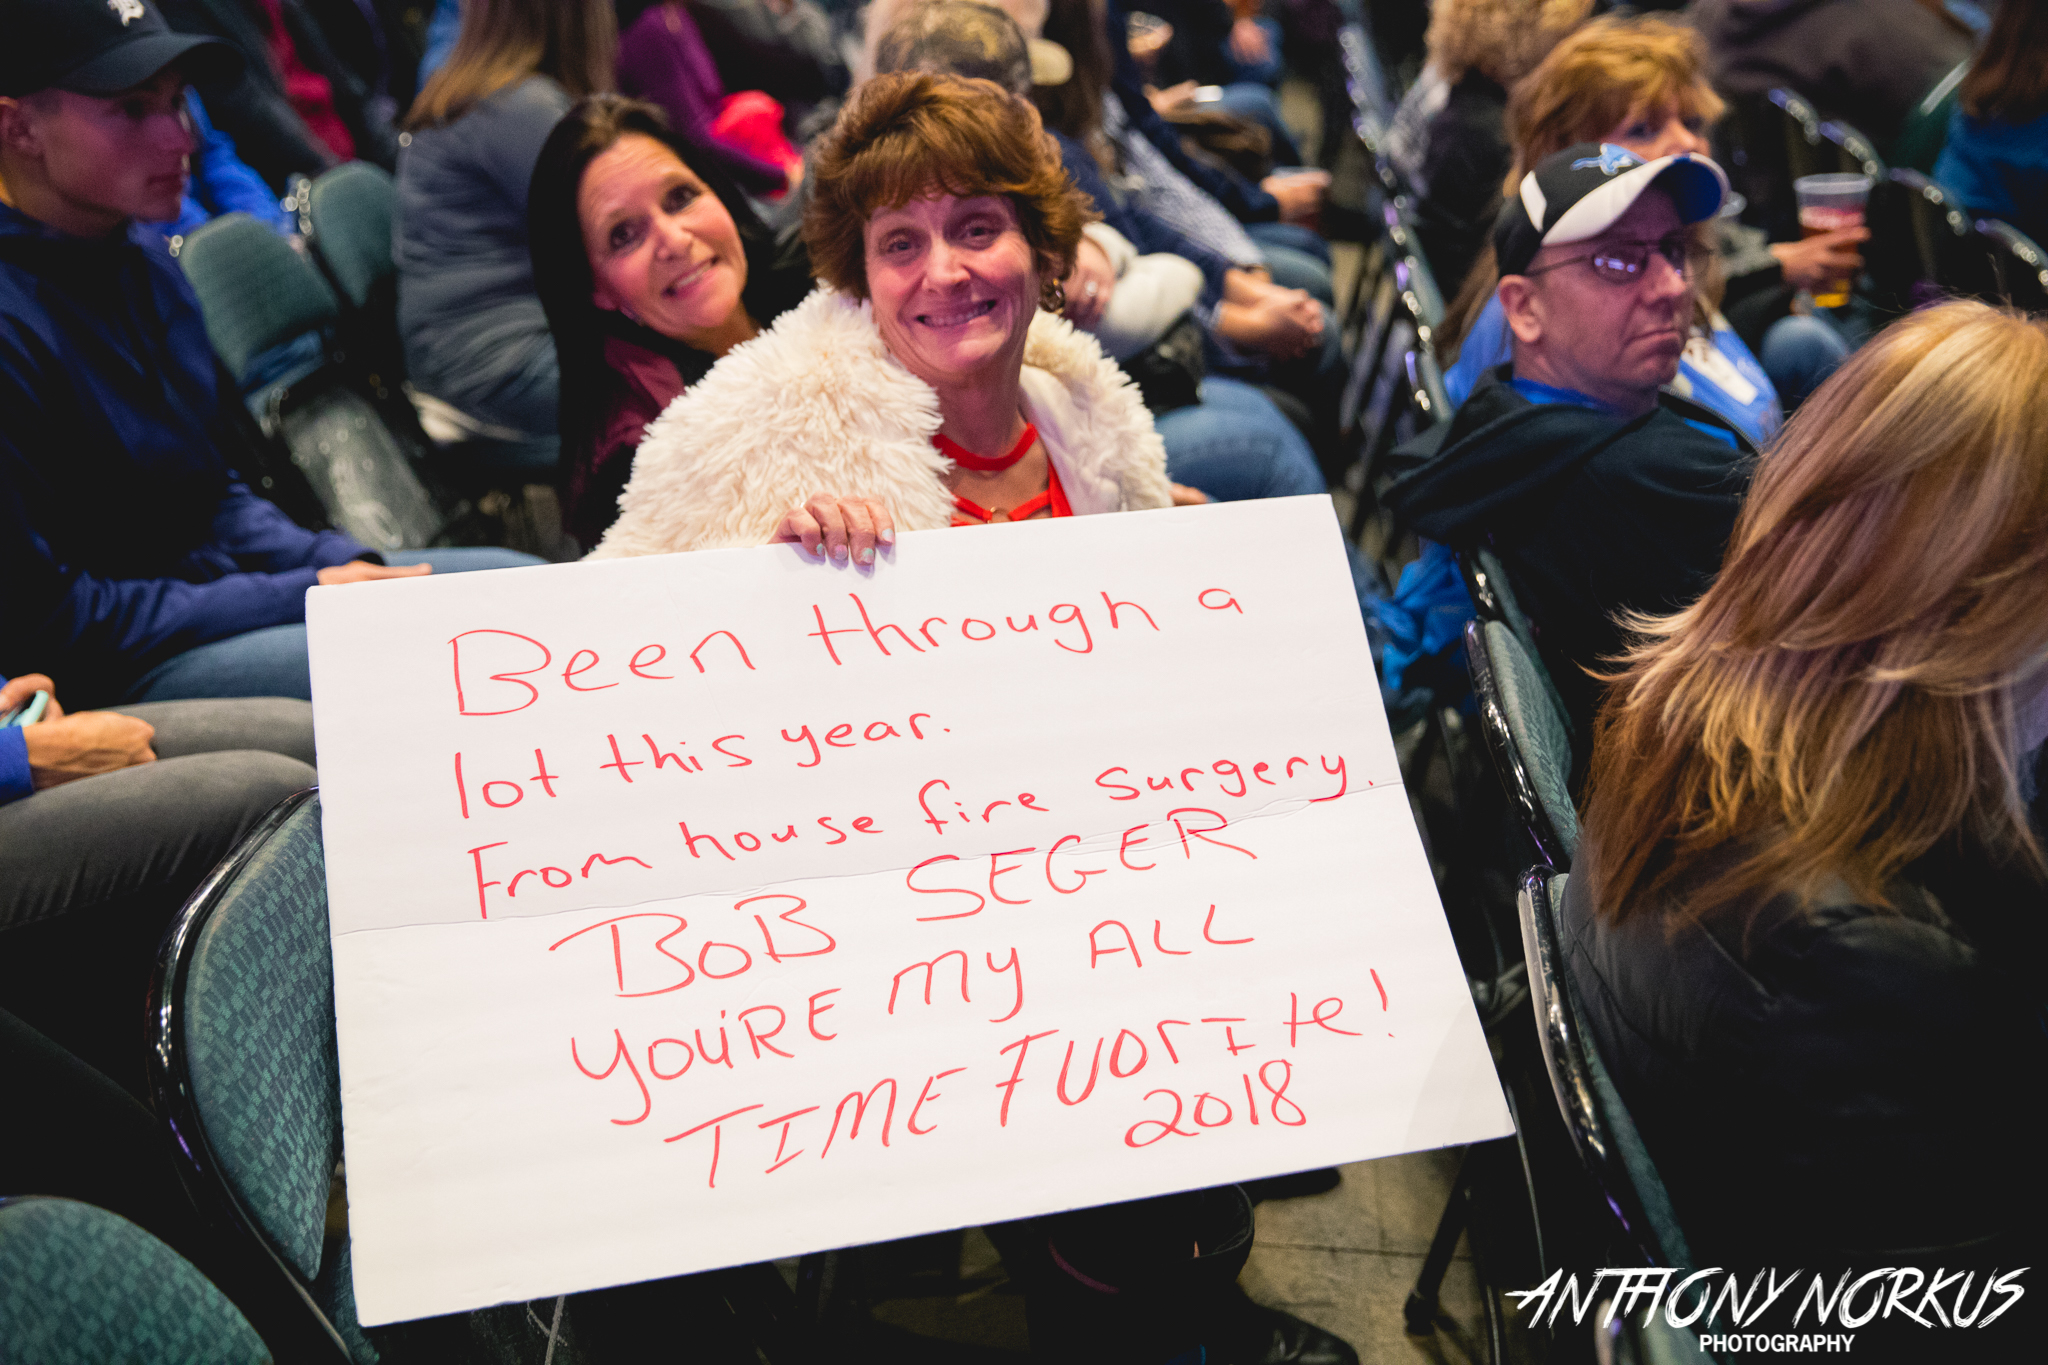 Been through a
lot this year.
From house fire surgery.
BoB SEGER
YOU'RE My ALL
TIME FUORITE!
2018
ANTHONY NORKUS
PHOTOGRAPHY